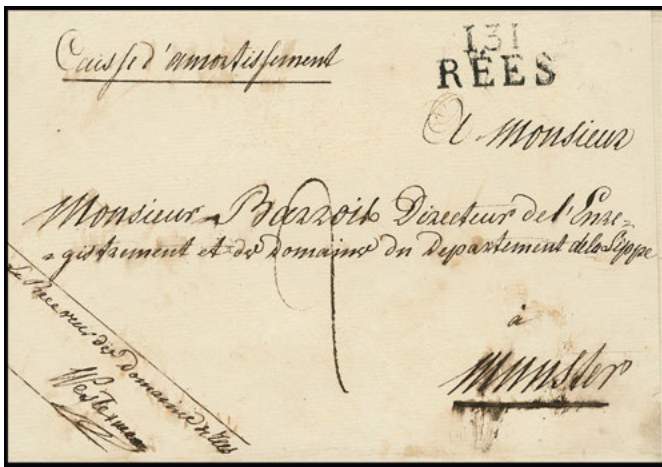 Caisse d'amortissement
131
REES
A Monsieur
Monsieur Barrois Directeur de l'Enre=
=gistrement et des Domaines du Departement de la Lippe
à
Munster
Le Receveur des Domaines à Rees
Westerman